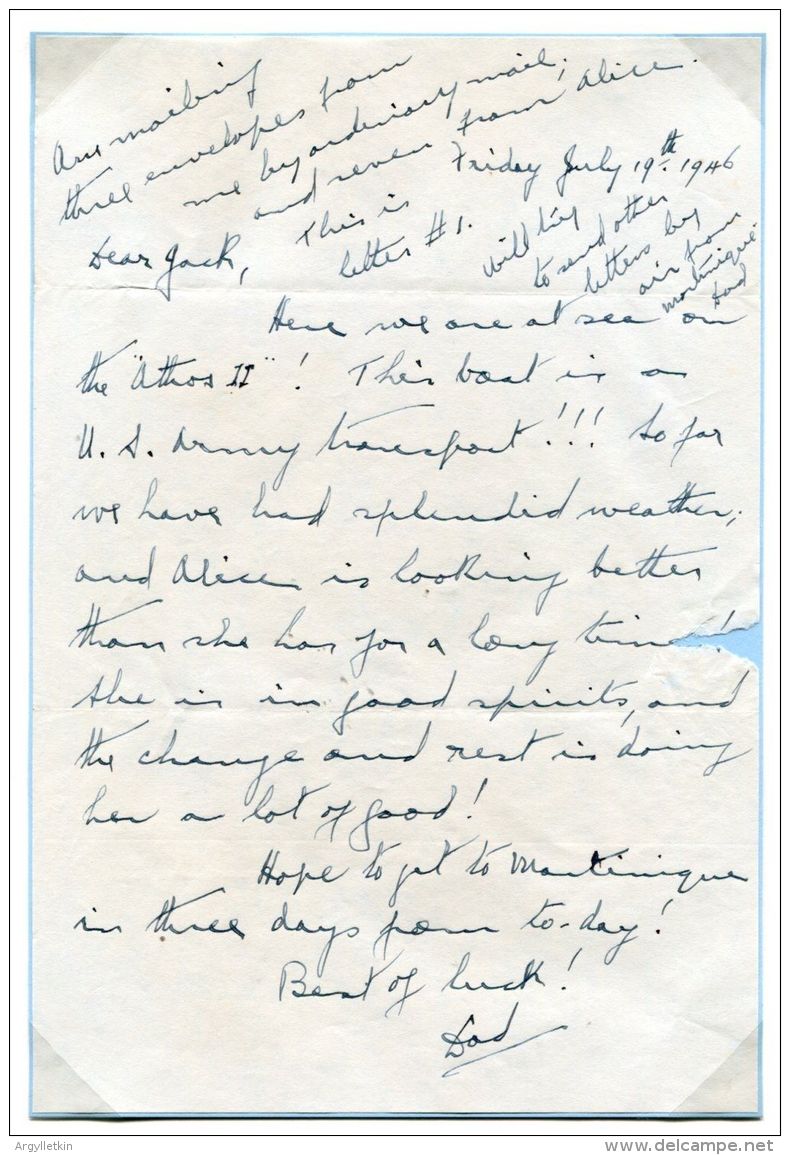 Am mailing
three envelopes from
me by ordinary mail,
and seven from Alice.
This is
letter #1.
Friday July 19th. 1946
Will try
to send other
letters by
air from
Martinique.
Dad
Dear Jack,
Here we are at sea on
the "Athos II"! This boat is a
U. S. Army transport!!! So far
we have had splendid weather,
and Alice is looking better
than she has for a long time!
She is in good spirits, and
the change and rest is doing
her a lot of good!
Hope to get to Martinique
in three days from to-day!
Best of luck!
Dad
Argylletkin
delcampe.net